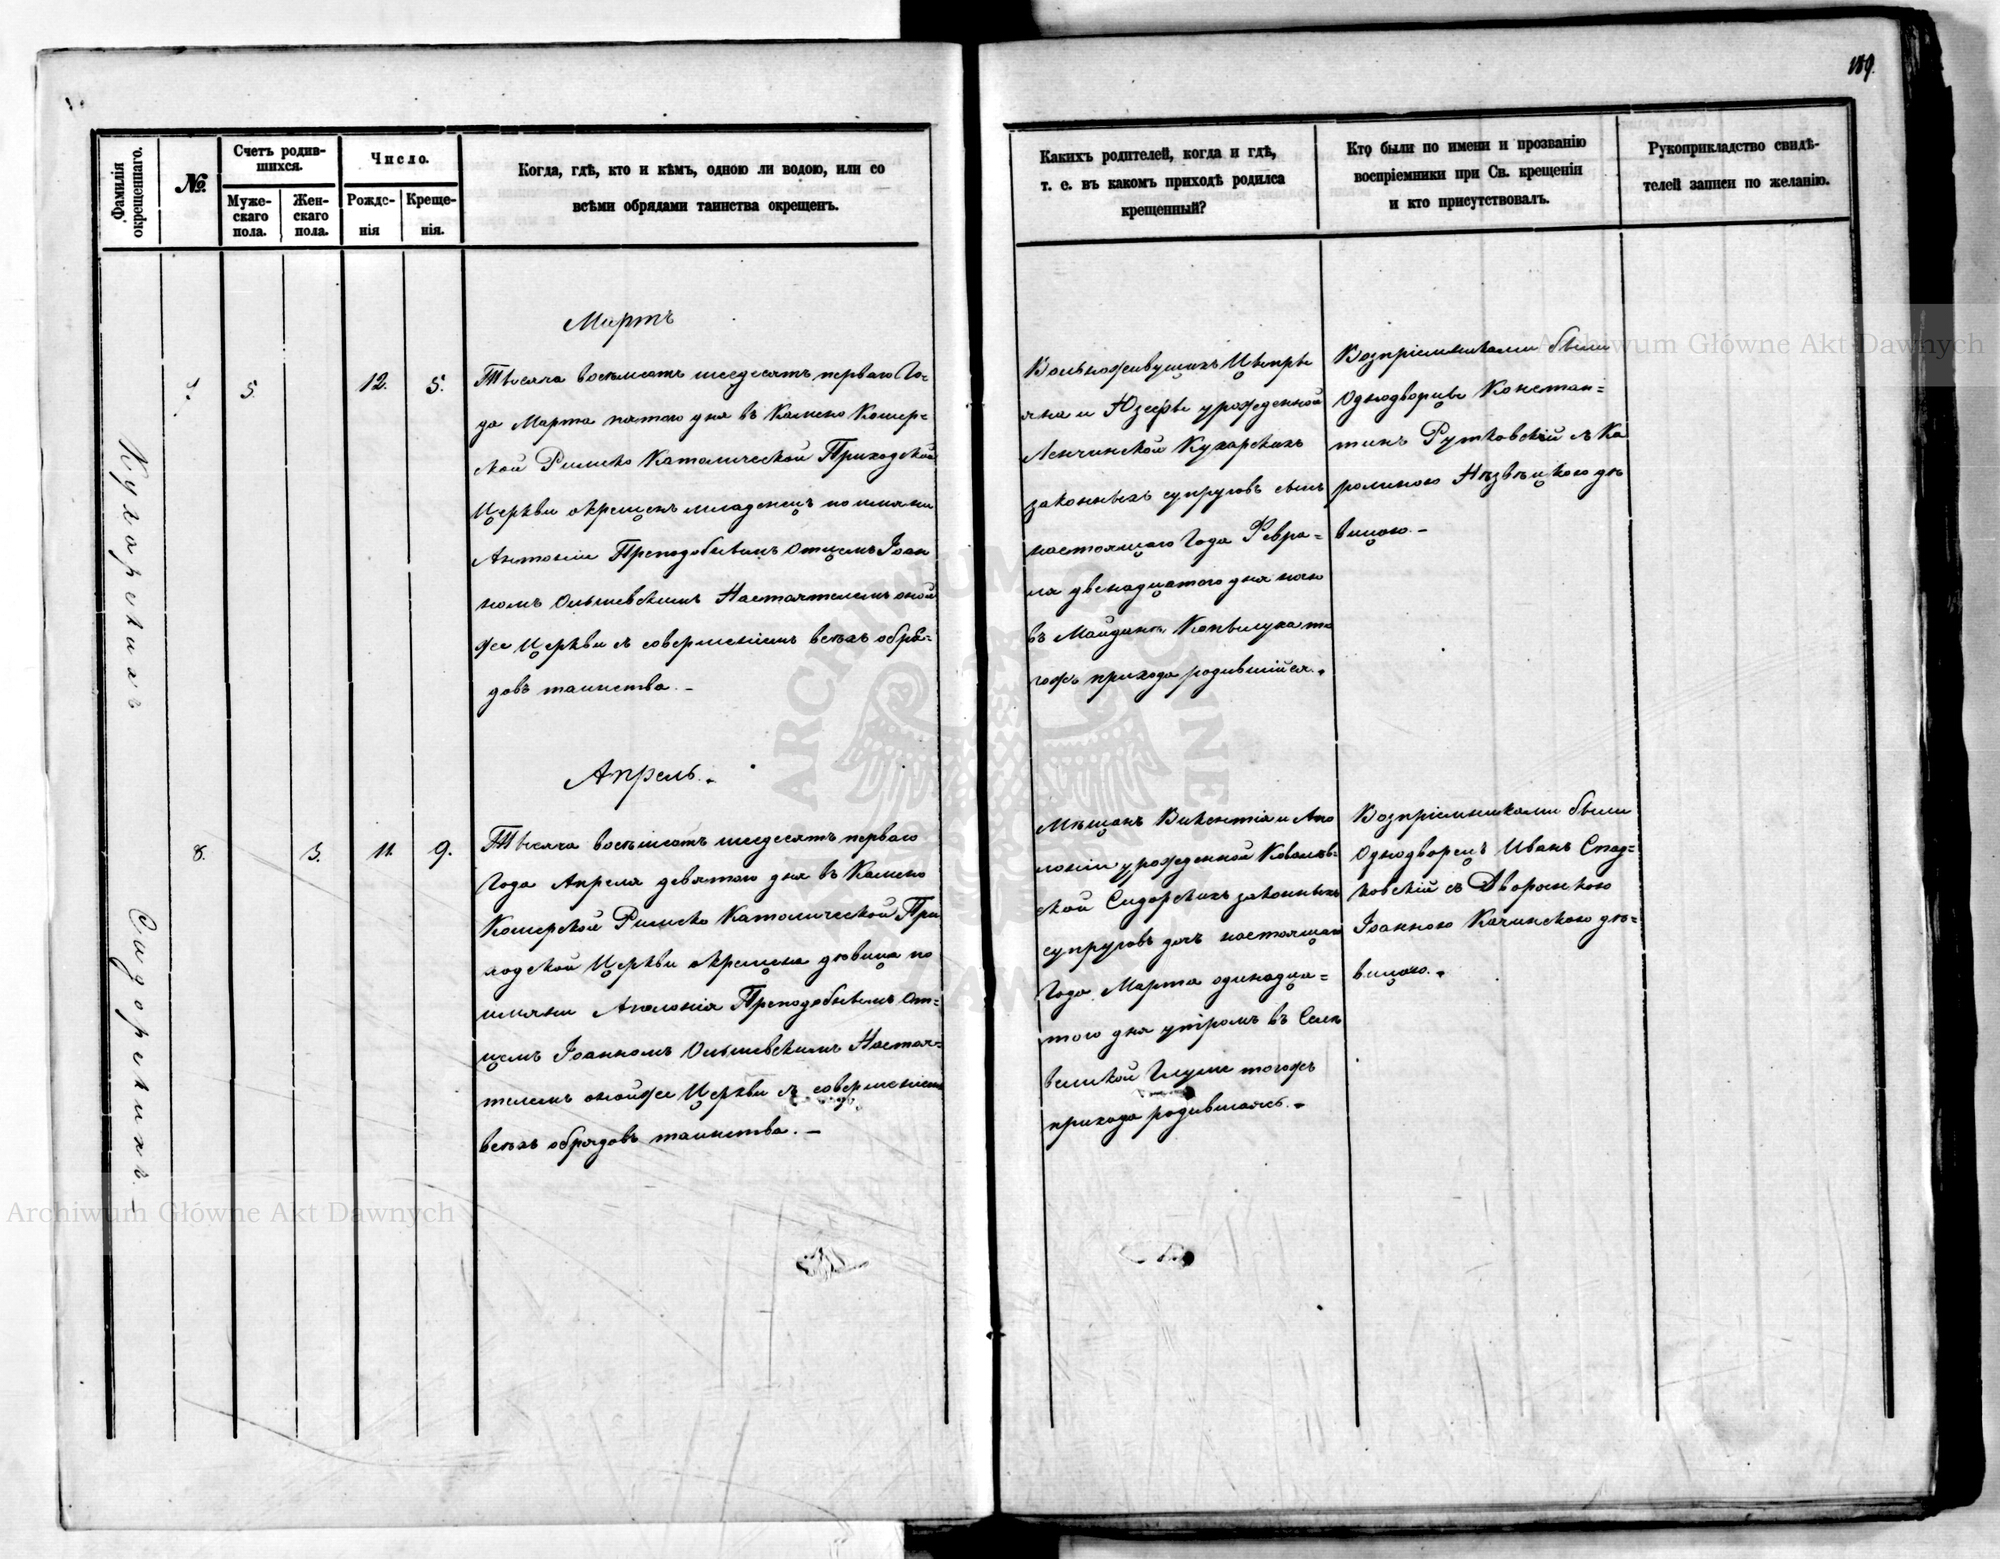 189.
Фамилія окрещеннаго.
№.
Счетъ родив-
шихся.
Муже-
скаго
пола.
Жен-
скаго
пола.
Число.
Рожде-
нія
Креще-
нія.
Когда, гдѣ, кто и кѣмъ, одною ли водою, или со
всѣми обрядами таинства окрещенъ.
Какихъ родителей, когда и гдѣ,
т. е. въ какомъ приходѣ родился
крещенный?
Кто были по имени и прозванію
воспріемники при Св. крещеніи
и кто присутствовалъ.
Рукоприкладство свидѣ-
телей записи по желанію.
Кухарскихъ
7.
5.
12.
5.
Мартъ
Тысяча восемьсотъ шесдесятъ перваго Го-
да Марта пятого дня въ Камено Кошер-
ской Римско Католической Приходской
Церкви окрещенъ младенецъ по имяни
Антоній Преподобнымъ Отцемъ Іоан
номъ Ольшевскимъ Настоятелемъ оной
же Церкви съ совершеніемъ всѣхъ обря-
довъ таинства. –
Вольноживущихъ Ципри
яна и Юзефы урожденной
Ленчинской Кухарскихъ
законныхъ супруговъ сынъ
настоящаго Года Февра=
ля двенадцатого дня ночю
въ Майдинѣ то
гожъ прихода родившійся.
Возпріемниками были
Однодворцы Констан=
тинъ Рутковскій съ Ка
ролиною дѣ
вицою. –
Сидорскихъ. –
8.
3.
11.
9.
Апрель.
Тысяча восемьсотъ шесдесятъ перваго
Года Апреля девятого дня въ Камено
Кошерской Римско Католической При
ходской Церкви окрещена дѣвица по
имяни Аполонія Преподобнымъ От=
цемъ Іоанномъ Ольшевскимъ Настоя=
телемъ онойже Церкви съ совершеніемъ
всѣхъ обрядовъ таинства. –
Мѣщанъ Викентія и Апо
лоніи урожденной Ковалев-
ской Сидорскихъ законныхъ
супруговъ дочь настоящаго
Года Марта одинадца=
того дня утромъ въ Селѣ
Великой Глуше тогожъ
прихода родившаясь.
Возпріемниками были
Однодворецъ Иванъ Стад=
ковскій съ Дворянкою
Іоанною Качинскою дѣ=
вицою.
Archiwum Główne Akt Dawnych
Archiwum Główne Akt Dawnych